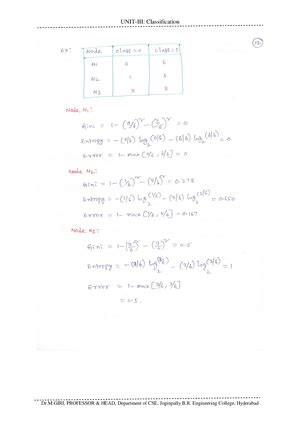 UNIT-III: Classification
Ex:
Node class=0 class=1
N1 0 6
N2 1 5
N3 3 3
Node N1:
Gini = 1-(0/6)² - (6/6)² = 0
Entropy = -(0/6) log₂(0/6) - (6/6) log₂(6/6) = 0
Error = 1- max[0/6, 6/6] = 0
Node N2:
Gini = 1-(1/6)² - (5/6)² = 0.278
Entropy = -(1/6) log₂(1/6) - (5/6) log₂(5/6) = 0.650
Error = 1- max[1/6, 5/6] = 0.167
Node N3:
Gini = 1-(3/6)² - (3/6)² = 0.5
Entropy = -(3/6) log₂(3/6) - (3/6) log₂(3/6) = 1
Error = 1- max[3/6, 3/6]
= 0.5.
Dr.M.GIRI, PROFESSOR & HEAD, Department of CSE, Joginpally B.R. Engineering College, Hyderabad